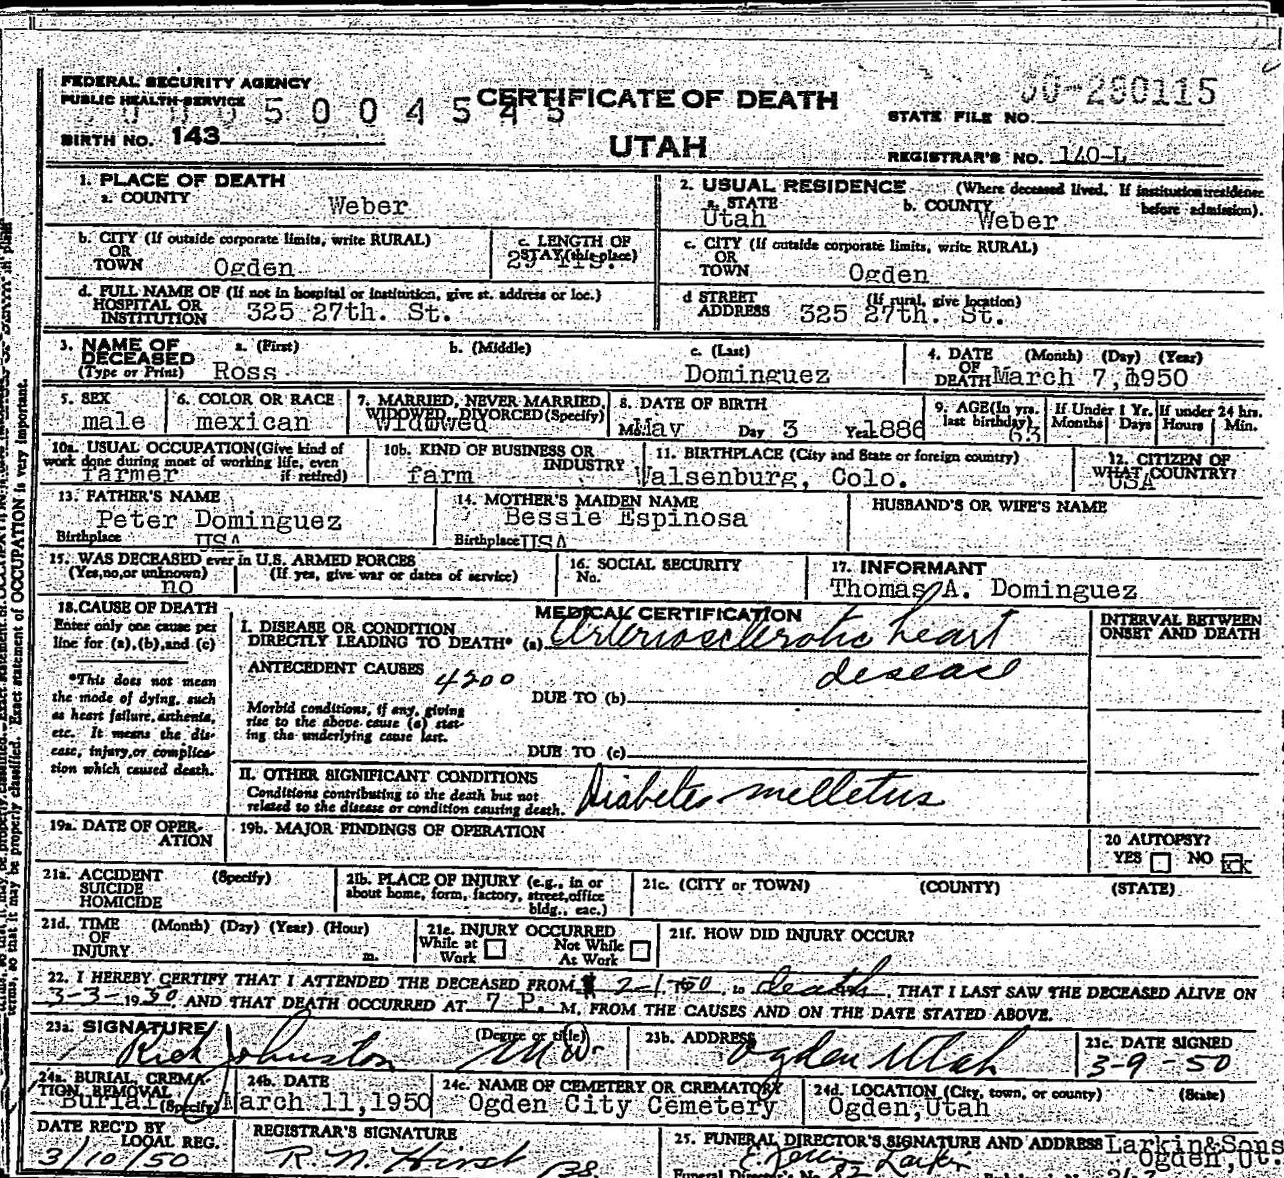 FEDERAL SECURITY AGENCY
PUBLIC HEALTH SERVICE
CERTIFICATE OF DEATH
UTAH
BIRTH NO. 143
STATE FILE NO. 50-280115
REGISTRAR'S NO. 140-L
1. PLACE OF DEATH
a. COUNTY Weber
2. USUAL RESIDENCE (Where deceased lived. If institution: residence before admission).
a. STATE Utah b. COUNTY Weber
b. CITY (If outside corporate limits, write RURAL)
OR
TOWN Ogden
c. LENGTH OF
STAY (this place)
c. CITY (If outside corporate limits, write RURAL)
OR
TOWN Ogden
d. FULL NAME OF (If not in hospital or institution, give st. address or loc.)
HOSPITAL OR
INSTITUTION 325 27th. St.
d STREET (If rural, give location)
ADDRESS 325 27th. St.
3. NAME OF DECEASED
(Type or Print)
a. (First) Ross
b. (Middle)
c. (Last) Dominguez
4. DATE OF DEATH (Month) (Day) (Year)
March 7, 1950
5. SEX male
6. COLOR OR RACE mexican
7. MARRIED, NEVER MARRIED,
WIDOWED, DIVORCED (Specify) Widowed
8. DATE OF BIRTH
Mo. May Day 3 Year 1886
9. AGE (In yrs. last birthday) 63
If Under 1 Yr. Months Days
If under 24 hrs. Hours Min.
10a. USUAL OCCUPATION (Give kind of
work done during most of working life, even
if retired) farmer
10b. KIND OF BUSINESS OR
INDUSTRY farm
11. BIRTHPLACE (City and State or foreign country)
Walsenburg, Colo.
12. CITIZEN OF
WHAT COUNTRY? USA
13. FATHER'S NAME
Peter Dominguez
Birthplace USA
14. MOTHER'S MAIDEN NAME
Bessie Espinosa
Birthplace USA
HUSBAND'S OR WIFE'S NAME
15. WAS DECEASED ever in U.S. ARMED FORCES
(Yes, no, or unknown) (If yes, give war or dates of service)
no
16. SOCIAL SECURITY
No.
17. INFORMANT
Thomas A. Dominguez
18. CAUSE OF DEATH
Enter only one cause per
line for (a), (b), and (c)
*This does not mean
the mode of dying, such
as heart failure, asthenia,
etc. It means the dis-
ease, injury, or complica-
tion which caused death.
MEDICAL CERTIFICATION
I. DISEASE OR CONDITION
DIRECTLY LEADING TO DEATH* (a) Arteriosclerotic heart
disease
ANTECEDENT CAUSES 4200
DUE TO (b)
Morbid conditions, if any, giving
rise to the above cause (a) stat-
ing the underlying cause last.
DUE TO (c)
INTERVAL BETWEEN
ONSET AND DEATH
II. OTHER SIGNIFICANT CONDITIONS
Conditions contributing to the death but not
related to the disease or condition causing death.
Diabetes melletus
19a. DATE OF OPER-
ATION
19b. MAJOR FINDINGS OF OPERATION
20 AUTOPSY?
YES NO
21a. ACCIDENT (Specify)
SUICIDE
HOMICIDE
21b. PLACE OF INJURY (e.g., in or
about home, form, factory, street, office
bldg., eac.)
21c. (CITY or TOWN) (COUNTY) (STATE)
21d. TIME (Month) (Day) (Year) (Hour)
OF
INJURY m.
21e. INJURY OCCURRED
While at Work Not While At Work
21f. HOW DID INJURY OCCUR?
22. I HEREBY CERTIFY THAT I ATTENDED THE DECEASED FROM 2-1-1950 to death, THAT I LAST SAW THE DECEASED ALIVE ON
3-3-1950 AND THAT DEATH OCCURRED AT 7 P. M, FROM THE CAUSES AND ON THE DATE STATED ABOVE.
23a. SIGNATURE (Degree or title)
Johnston M.D.
23b. ADDRESS
Ogden Utah
23c. DATE SIGNED
3-9-50
24a. BURIAL, CREMA-
TION, REMOVAL
(Specify) Burial
24b. DATE
March 11, 1950
24c. NAME OF CEMETERY OR CREMATORY
Ogden City Cemetery
24d. LOCATION (City, town, or county) (State)
Ogden, Utah
DATE REC'D BY
LOCAL REG.
3/10/50
REGISTRAR'S SIGNATURE
R. N. Hirst
25. FUNERAL DIRECTOR'S SIGNATURE AND ADDRESS Larkin&Sons
Ogden, Ut.
Larkin
Funeral Director's No. 82